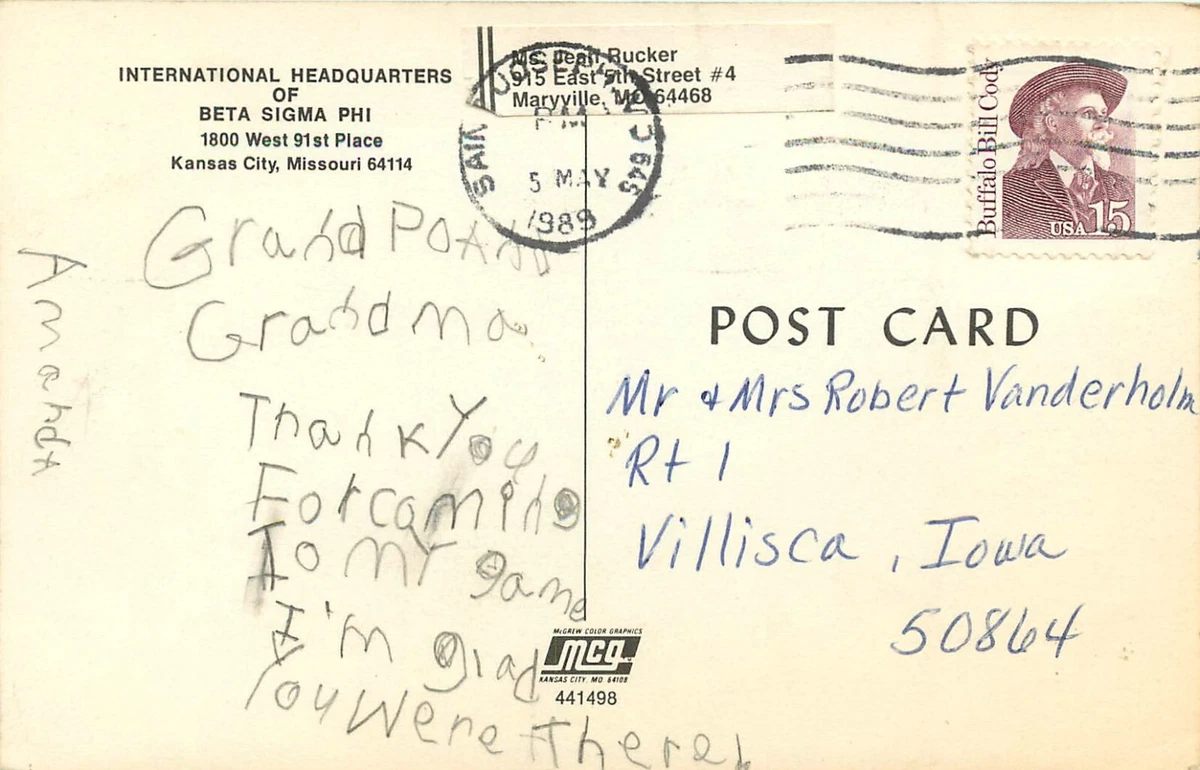 INTERNATIONAL HEADQUARTERS
OF
BETA SIGMA PHI
1800 West 91st Place
Kansas City, Missouri 64114
Ms. Jean Rucker
915 East 5th Street #4
Maryville, MO 64468
PM
5 MAY
1989
Buffalo Bill Cody
USA 15
Grandpa and
Grandma
Thank You
For coming
To my game
I'm glad
You Were There!
Amanda
POST CARD
Mr & Mrs Robert Vanderholm
Rt 1
Villisca, Iowa
50864
McGREW COLOR GRAPHICS
mcg
KANSAS CITY, MO 64108
441498